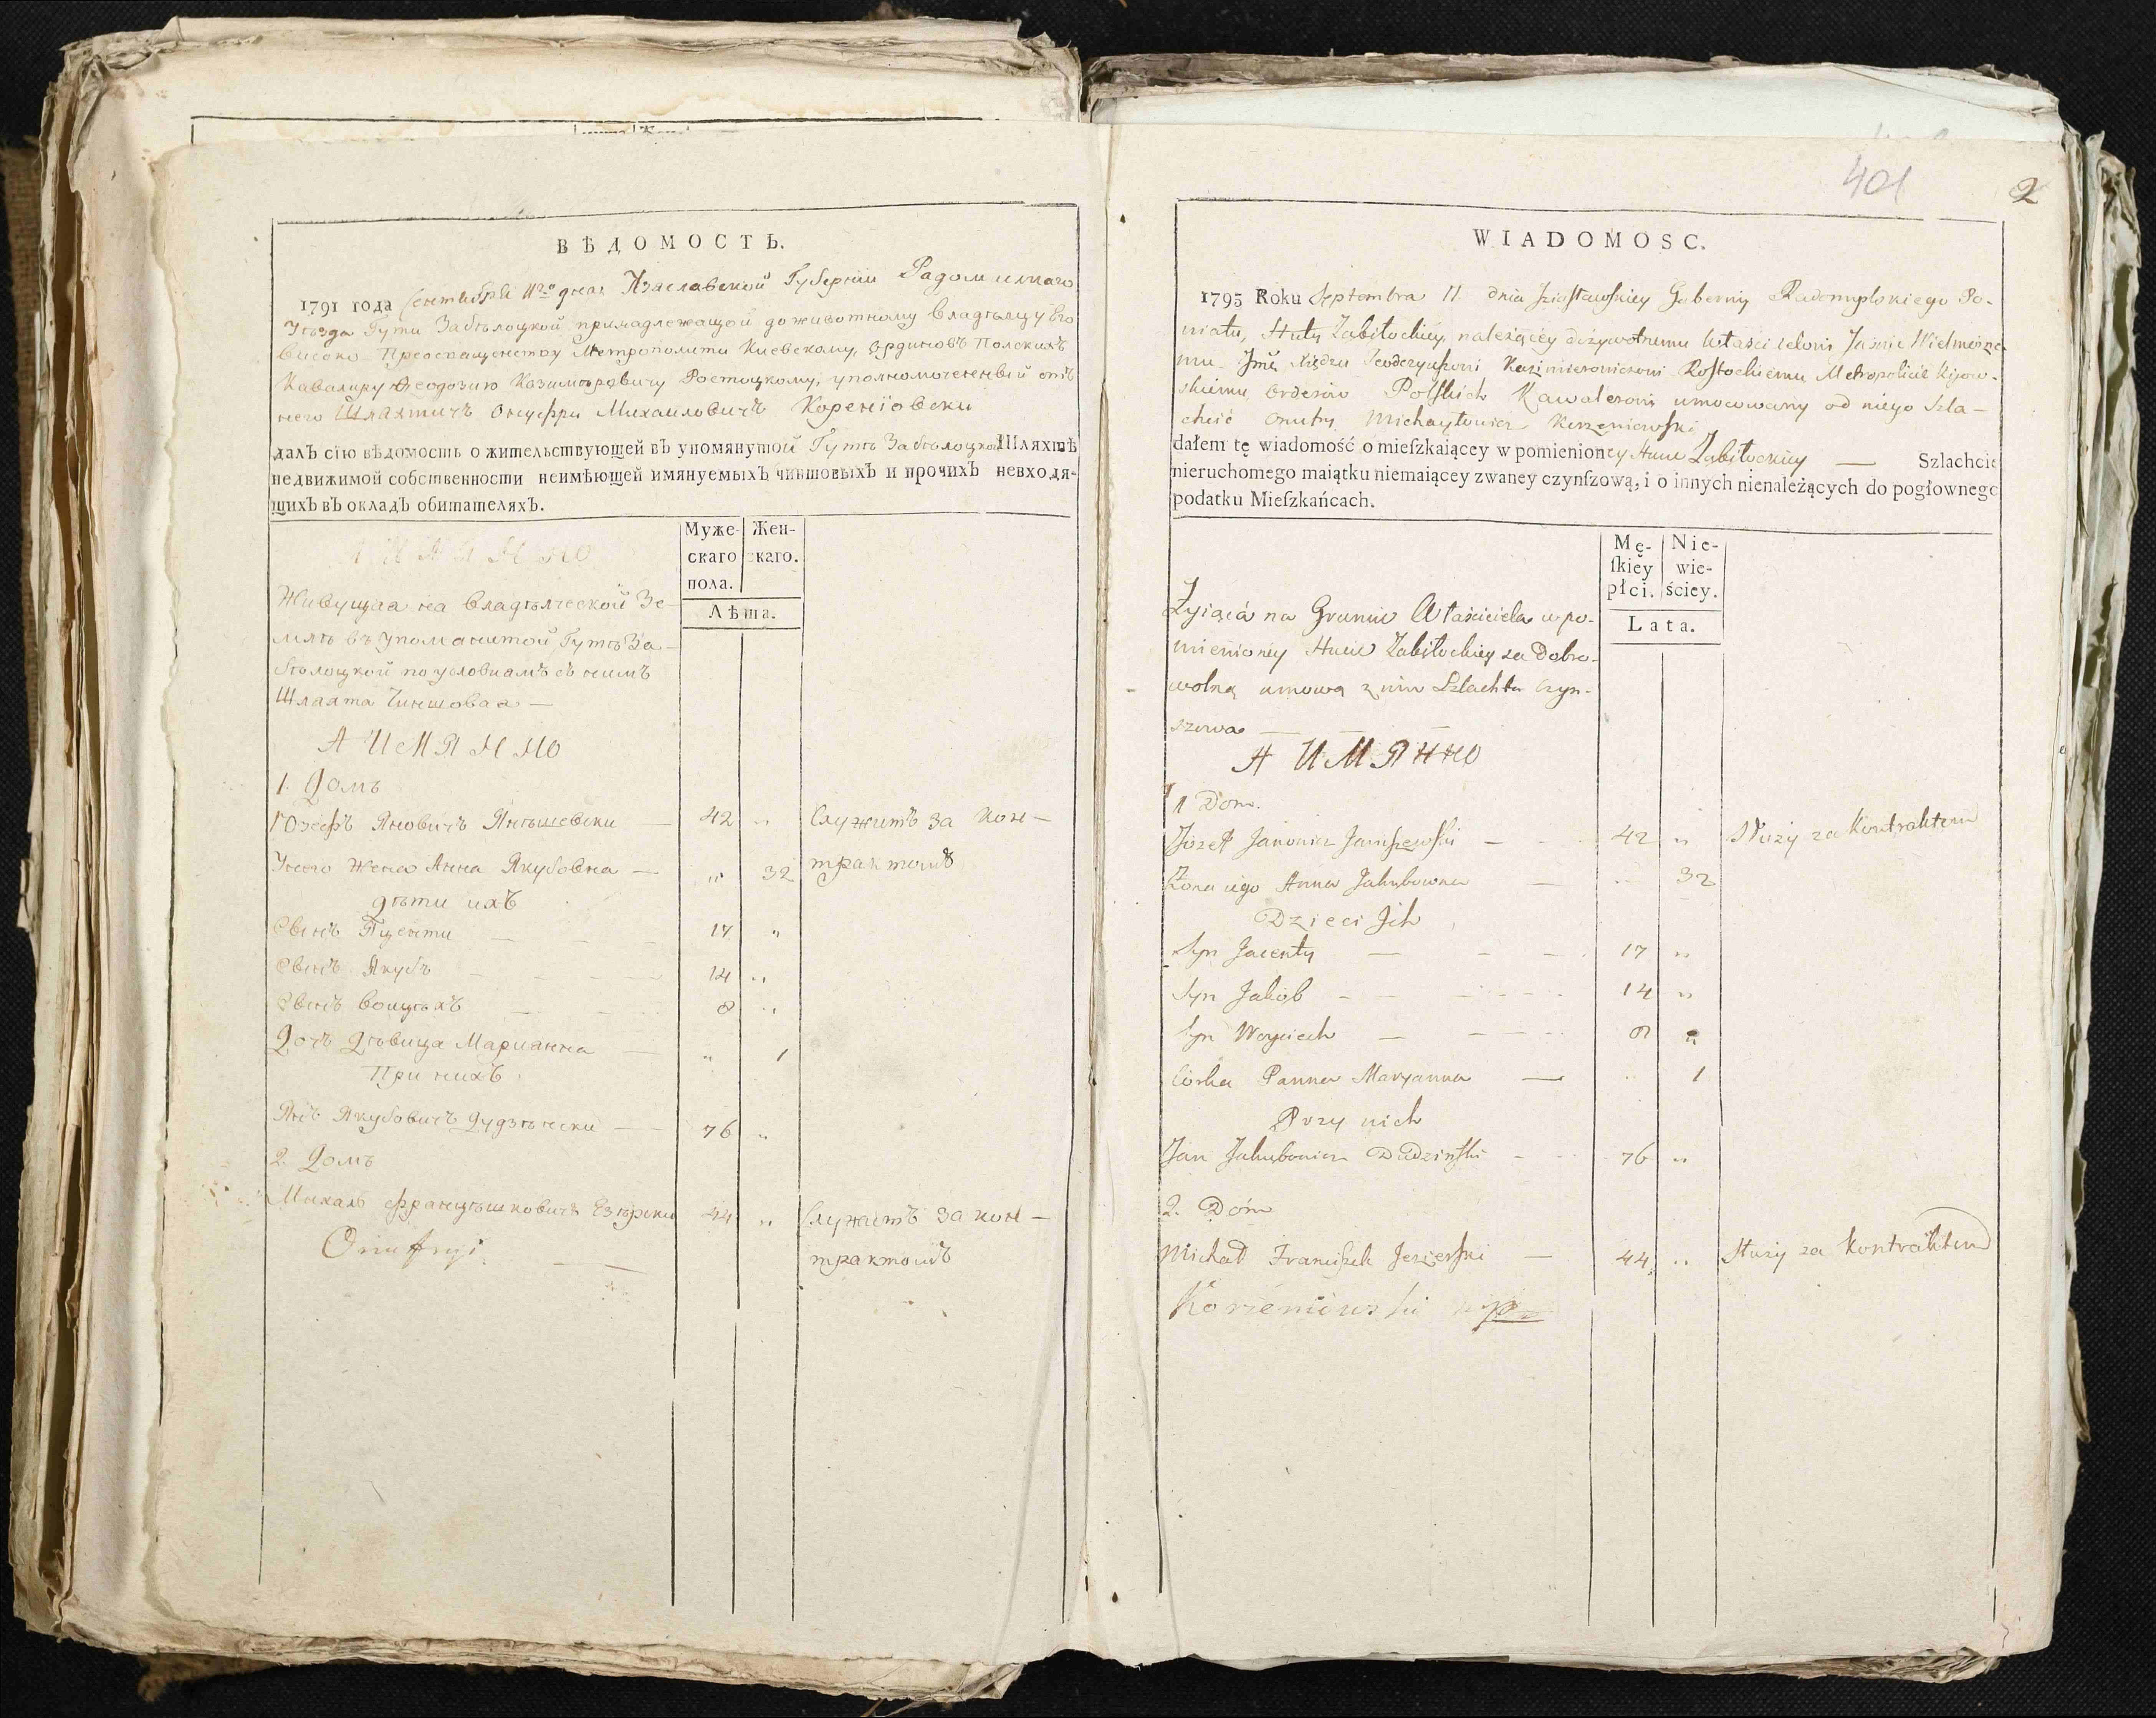 ВѢДОМОСТЬ.
1791 года Сентября 11го дня Изаславской Губернїи Радомислаго
Уѣзда Гути Забѣлоцкой принадлежащой доживотному Владѣлцу Его
високо Преосвященству Митрополити Киевскому, Ординовъ Полскихъ
Кавалиру Феодозию Казимѣровичу Ростоцкому, уполномоченный отъ
него Шляхтичъ Онуфри Михаиловичъ Коренїовски
далъ сїю вѣдомость о жительствующей въ упомянутой Гутѣ Забѣлоцкой Шляхтѣ
недвижимой собственности неимѣющей имянуемыхъ чиншовыхъ и прочихъ невходя-
щихъ въ окладъ обитателяхъ.
Муже- Жен-
скаго скаго.
пола.
Лѣта.
Живущая на Владѣлческой Зе-
млѣ въ упомянутой Гутѣ За-
бѣлоцкой по условиамъ съ нимъ
Шляхта Чиншовая —
А ИМЯННО
1. Домъ
Юзефъ Яновичъ Янѣшевски — 42 „ Служитъ за кон-
У него Жена Анна Якубовна — „ 32 трактомъ
дѣти ихъ
Свинъ Яценти — 17 „
Свинъ Якубъ — 14 „
Свинъ Воицѣхъ — 8 „
Дочъ Дѣвица Марианна — „ 1
При нихъ
Янъ Якубовичъ Дудзѣнски — 76 „
2. Домъ
Михалъ Францѣшковичъ Езѣрски 44 „ Служитъ за кон-
Onufryi трактомъ
401 2
WIADOMOSC.
1795 Roku Septembra 11 dnia Iziasławskiey Guberniy Radomyslskiego Po-
wiatu, Huty Zabiłockiey, należącey dożywotnemu Właścicielowi Jaśnie Wielmożne-
mu Jmć Xiędzu Teodozyuszowi Kazimierowiczowi Rostockiemu Metropolicie Kijow-
skiemu, orderów Polskich Kawalerowi umocowany od niego Szla-
chcic Onufry Michayłowicz Korzeniewski
dałem tę wiadomość o mieſzkaiącey w pomienioney Hucie Zabiłockiey — Szlachcie
nieruchomego maiątku niemaiącey zwaney czynſzową, i o innych nienależących do pogłownego
podatku Mieſzkańcach.
Mę- Nie-
ſkiey wie-
płci. ściey.
Lata.
Żyiącą na Gruncie Właściciela w po-
mienioney Hucie Zabiłockiey za Dobro-
wolną umową z nim Szlachta Czyn-
szowa —
А ИМЯННО
1 Dom.
Józef Janowicz Janiszewski — 42 „ Służy za kontraktem
Żona iego Anna Jakubowna — „ 32
Dzieci Jch
Syn Jacenty — 17 „
Syn Jakób — 14 „
Syn Woyciech — 8 „
Córka Panna Maryanna — „ 1
Przy nich
Jan Jakubowicz Dudzinski — 76 „
2. Dóm
Michał Franciszek Jezierski — 44 „ Służy za kontraktem
Korzeniowski mpr